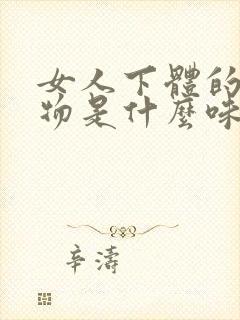 女人下體的
物是什麼味
辛濤